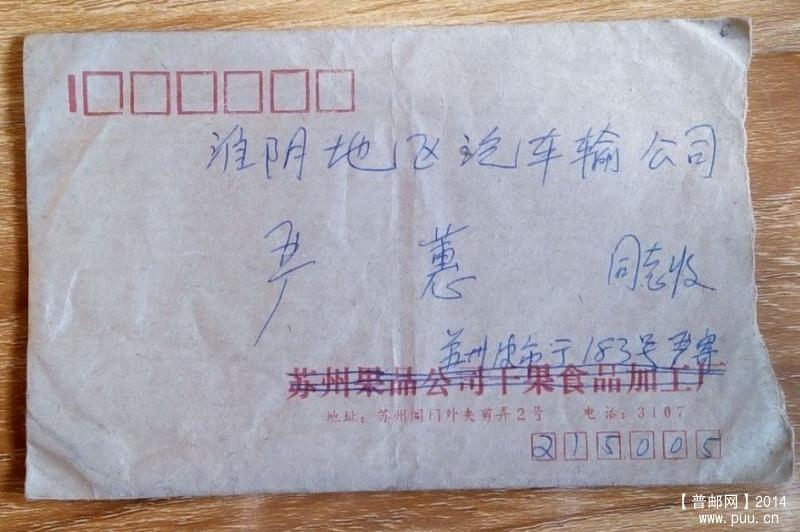 淮阴地区汽车输公司
严 蕙 同志收
苏州皮市于183号严寄
苏州果品公司干果食品加工厂
地址：苏州阊门外夹剪弄2号 电话：3107
215005
【普邮网】2014
www.puu.cn